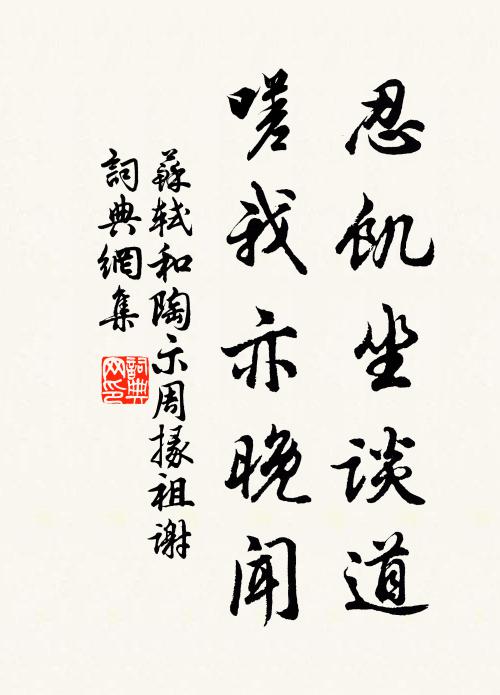 忍飢坐談道
嗟我亦晚聞
蘇軾和陶示周掾祖謝
詞典網集
詞典网印